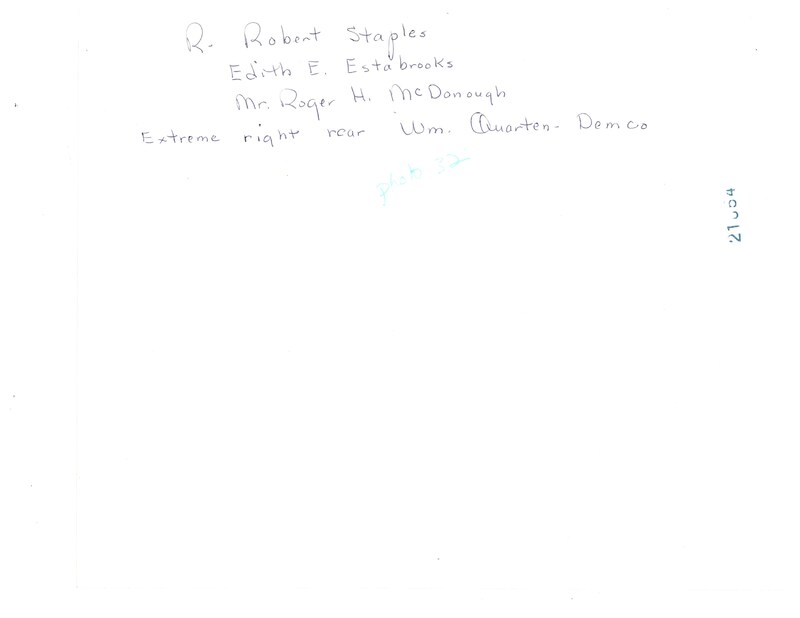 R. Robert Staples
Edith E. Estabrooks
Mr. Roger H. McDonough
Extreme right rear Wm. Quarten - Demco
photo 32